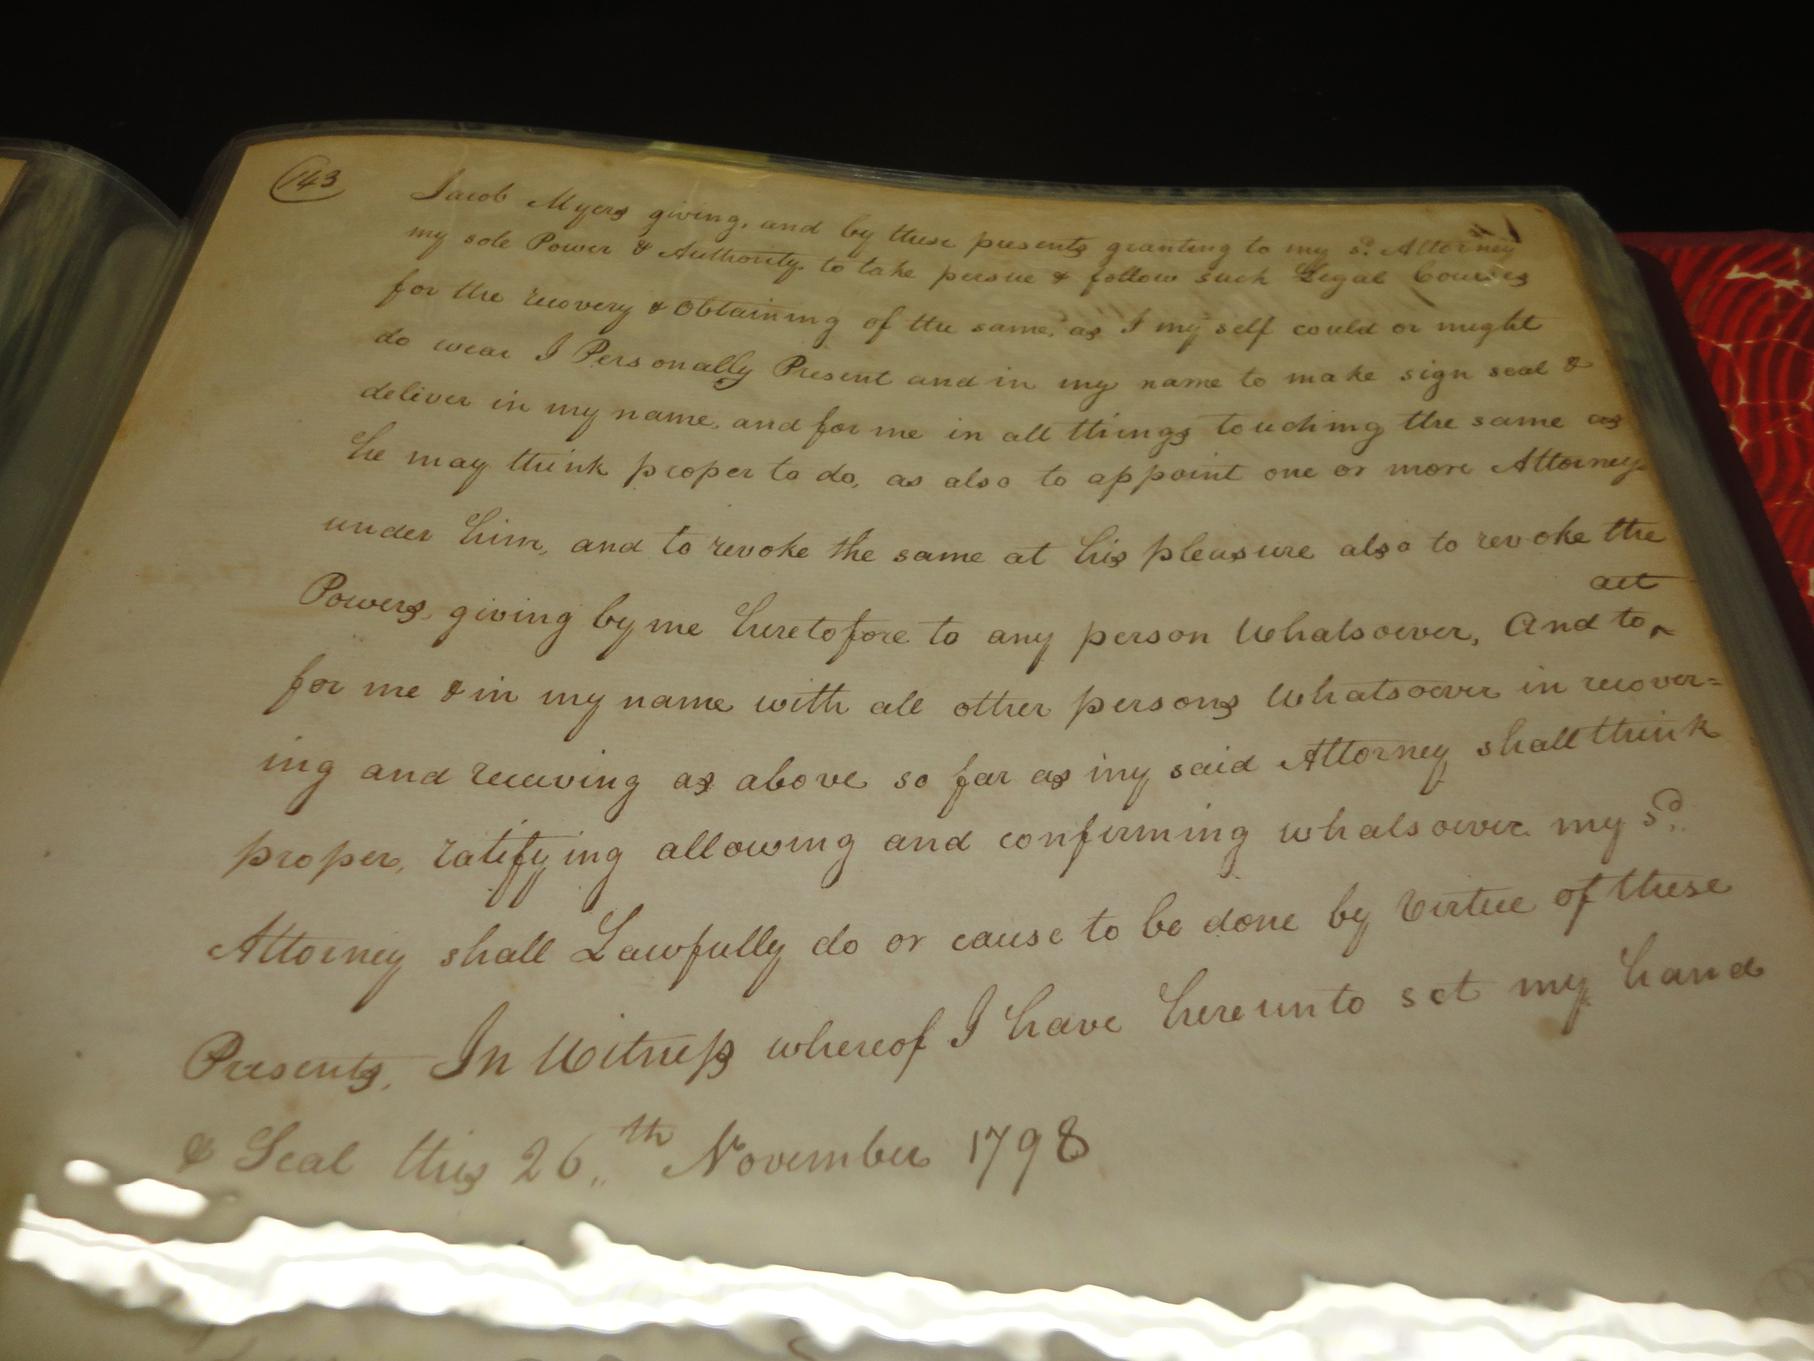 143
Jacob Myers giving, and by these presents granting to my sd. Attorney
my sole Power & Authority to take persue & follow such Legal Courses
for the recovery & Obtaining of the same, as I my self could or might
do wear I Personally Present and in my name to make sign seal &
deliver in my name, and for me in all things touching the same as
he may think proper to do, as also to appoint one or more Attorneys
under him, and to revoke the same at his pleasure also to revoke the
Powers, giving by me heretofore to any person Whatsoever, And to ‸
act
for me & in my name with all other persons Whatsoever in recover=
ing and receiving as above so far as my said Attorney shall think
proper, ratifying allowing and confirming whatsoever my sd.
Attorney shall Lawfully do or cause to be done by Virtue of these
Presents, In Witness whereof I have hereunto set my hand
& Seal this 26th November 1798